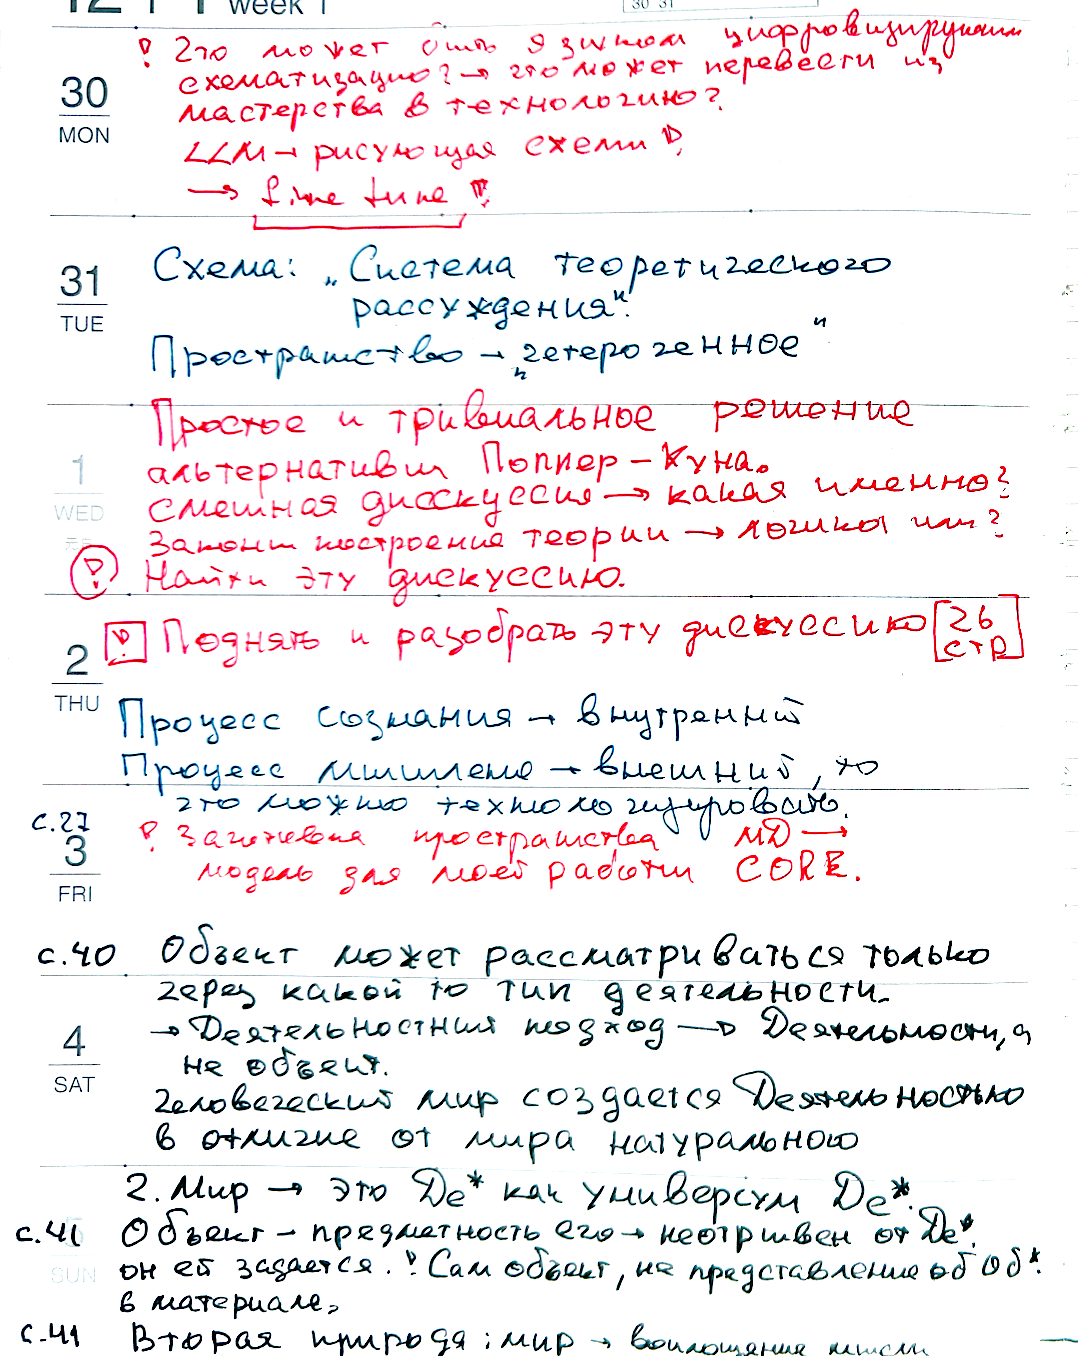 week 1
30 31
! Что может быть языком цифровизирующим
30 схематизацию? → что может перевести из
MON мастерства в технологию?
LLM → рисующая схемы!
→ fine tune !!!
31 Схема: „Система теоретического
TUE рассуждения".
Пространство → „гетерогенное"
Простое и тривиальное решение
1 альтернативы Поппер – Куна.
WED смешная дисскуссия → какая именно?
Законы построения теории → логики или?
! Найти эту дискуссию.
! Поднять и разобрать эту дискуссию [26 стр]
2
THU
Процесс сознания → внутренний
Процесс мышления → внешний, то
это можно технологизировать.
с.27 ! Заготовка пространства МД →
3 модель для моей работы CORE.
FRI
с.40 Объект может рассматриваться только
через какой то тип деятельности.
4 → Деятельностный подход → Деятельности, а
SAT не объект.
Человеческий мир создается Деятельностью
в отличие от мира натурального
2. Мир → это De* как универсум De*.
с.41 Объект – предметность его → неотрывен от De*.
SUN он ей задается. ! Сам объект, не представление об Об*.
в материале,
с.41 Вторая природа: мир → воплощение мысли